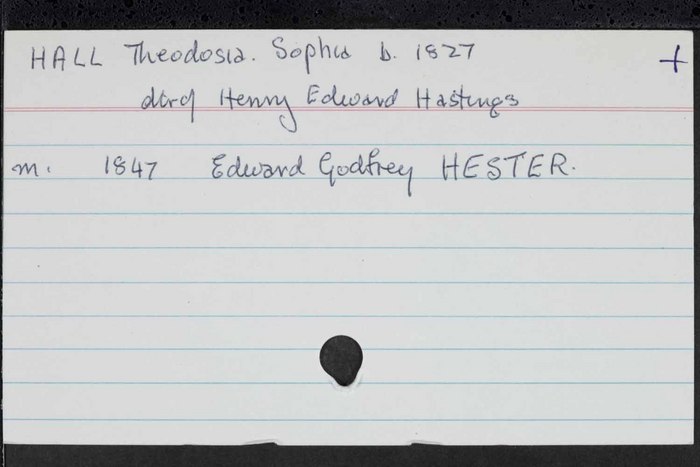 HALL Theodosia. Sophia b. 1827 +
dtr of Henry Edward Hastings
m. 1847 Edward Godfrey HESTER.